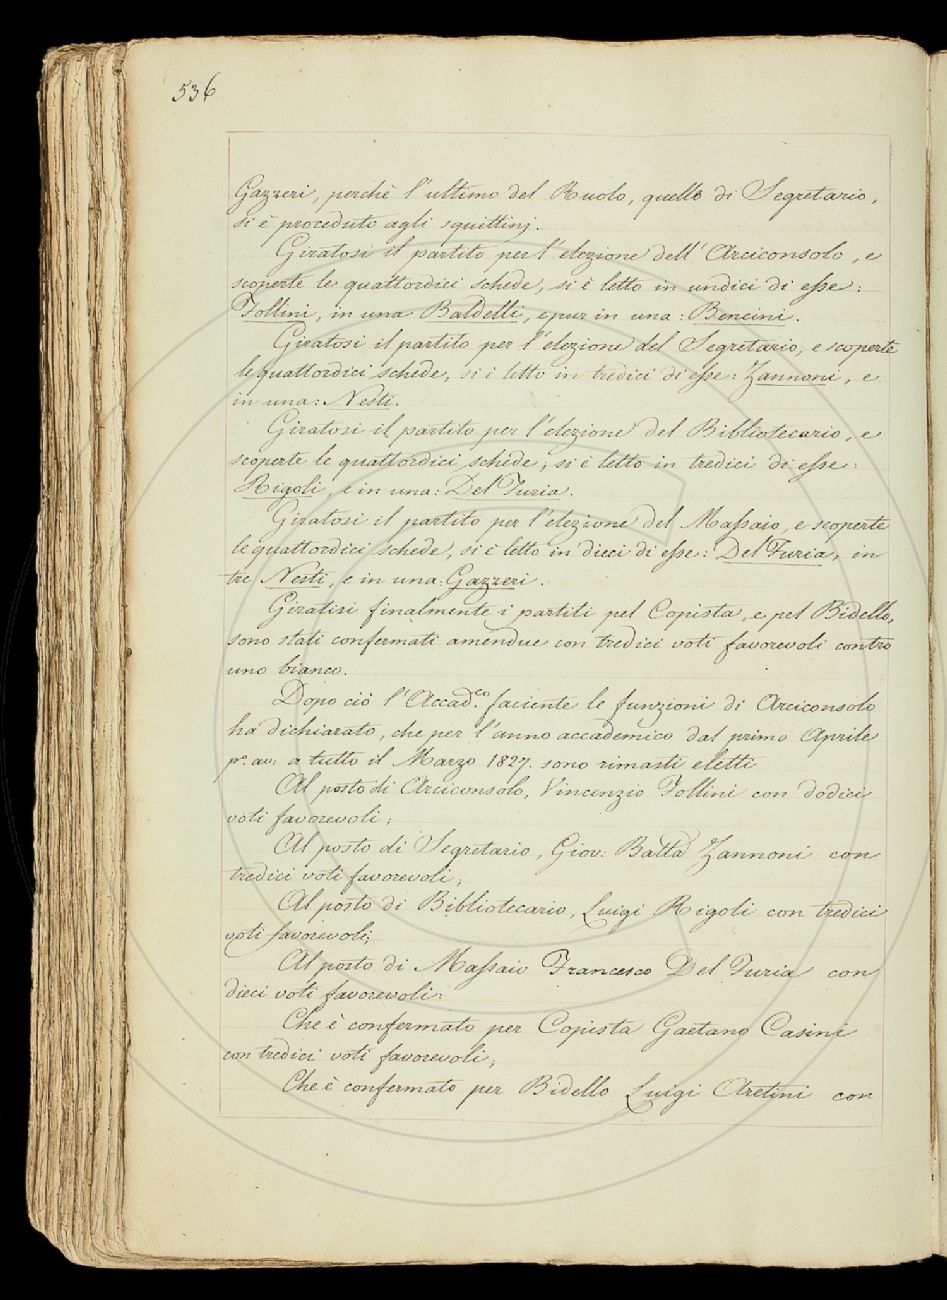 536
Gazzeri, perchè l'ultimo del Ruolo, quello di Segretario,
si è proceduto agli squittinj.
Giratosi il partito per l'elezione dell'Arciconsolo, e
scoperte le quattordici schede, si è letto in undici di esse:
Follini, in una Baldelli, e pur in una: Bencini.
Giratosi il partito per l'elezione del Segretario, e scoperte
le quattordici schede, si è letto in tredici di esse: Zannoni, e
in una: Nesti.
Giratosi il partito per l'elezione del Bibliotecario, e
scoperte le quattordici schede, si è letto in tredici di esse:
Rigoli, e in una: Del Furia.
Giratosi il partito per l'elezione del Massaio, e scoperte
le quattordici schede, si è letto in dieci di esse: Del Furia, in
tre Nesti, e in una: Gazzeri.
Giratisi finalmente i partiti pel Copista, e pel Bidello,
sono stati confermati amendue con tredici voti favorevoli contro
uno bianco.
Dopo ciò l'Accad.co faciente le funzioni di Arciconsolo
ha dichiarato, che per l'anno accademico dal primo Aprile
p.o av: a tutto il Marzo 1827. sono rimasti eletti
Al posto di Arciconsolo, Vincenzio Follini con dodici
voti favorevoli;
Al posto di Segretario, Giov: Batta Zannoni con
tredici voti favorevoli;
Al posto di Bibliotecario, Luigi Rigoli con tredici
voti favorevoli;
Al posto di Massaio Francesco Del Furia con
dieci voti favorevoli:
Che è confermato per Copista Gaetano Casini
con tredici voti favorevoli;
Che è confermato per Bidello Luigi Aretini con